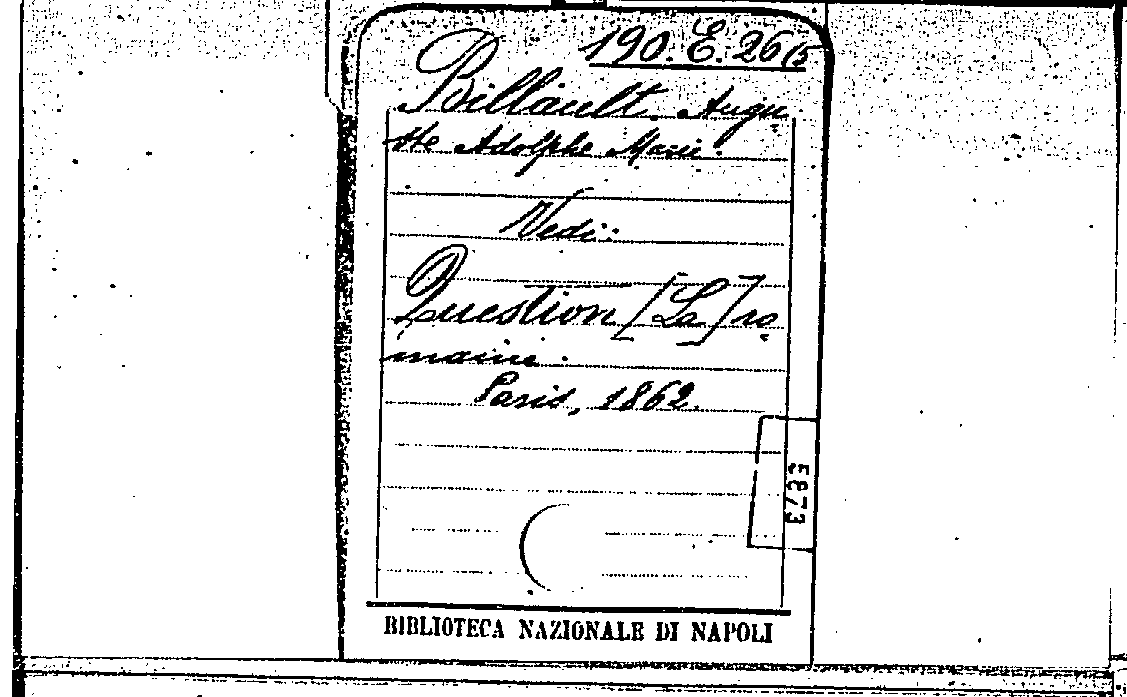 190. E. 26(5
Billault. Augu
ste Adolphe Marie.
Vedi:
Question [La] ro
maine.
Paris, 1862.
5873
BIBLIOTECA NAZIONALE DI NAPOLI